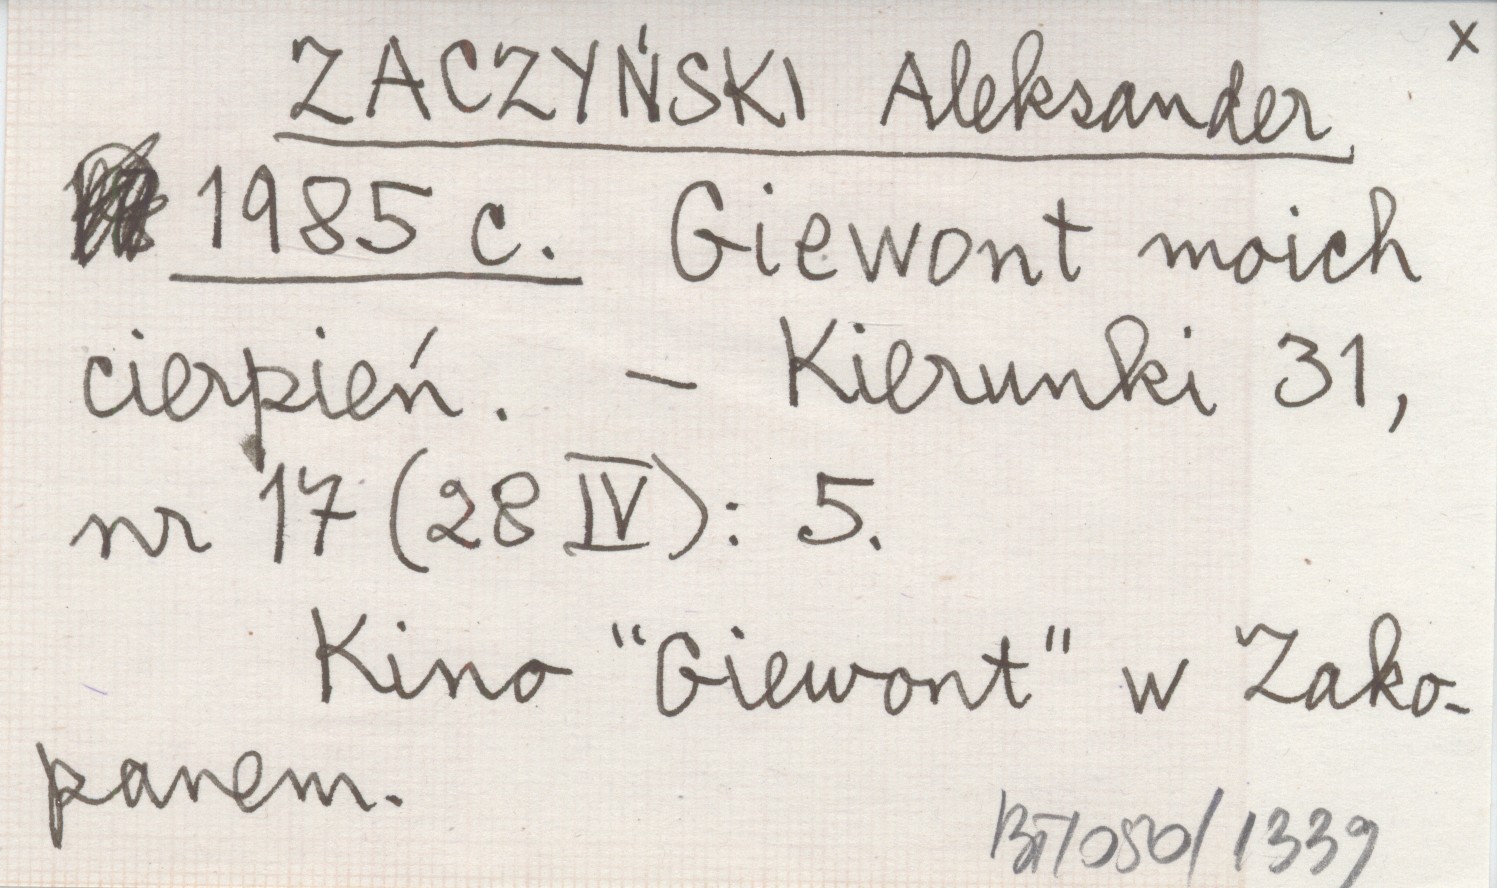 x
ZACZYŃSKI Aleksander
1985 c. Giewont moich
cierpień. – Kierunki 31,
nr 17 (28 IV): 5.
Kino "Giewont" w Zako-
panem.
BT/050/1339